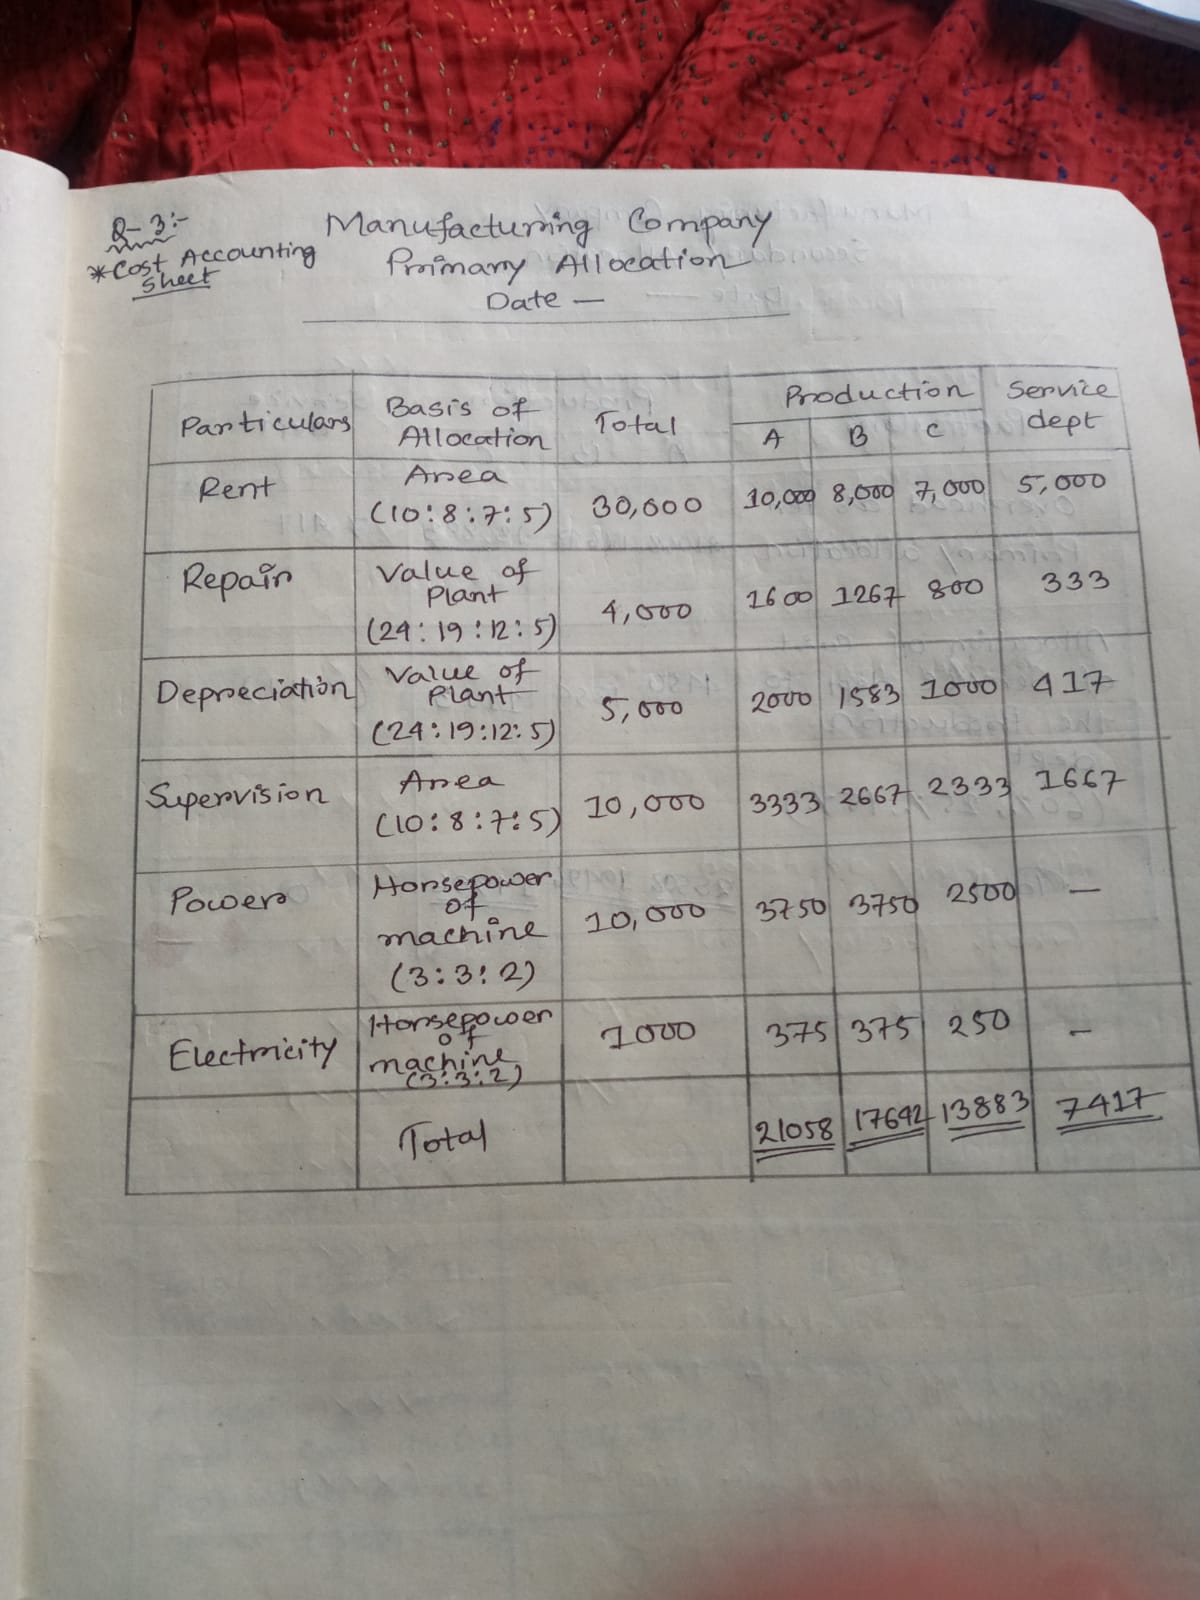 Q-3:-
*Cost Accounting
Sheet
Manufacturing Company
Primary Allocation
Date —
Particulars
Basis of
Allocation
Total
Production
A B C
Service
dept
Rent
Area
(10:8:7:5)
30,000 10,000 8,000 7,000 5,000
Repair
Value of
Plant
(24:19:12:5)
4,000 1600 1267 800 333
Depreciation
Value of
Plant
(24:19:12:5)
5,000 2000 1583 1000 417
Supervision
Area
(10:8:7:5)
10,000 3333 2667 2333 1667
Power
Horsepower
of
machine
(3:3:2)
10,000 3750 3750 2500 —
Electricity
Horsepower
of
machine
(3:3:2)
1000 375 375 250 —
Total
21058 17642 13883 7417